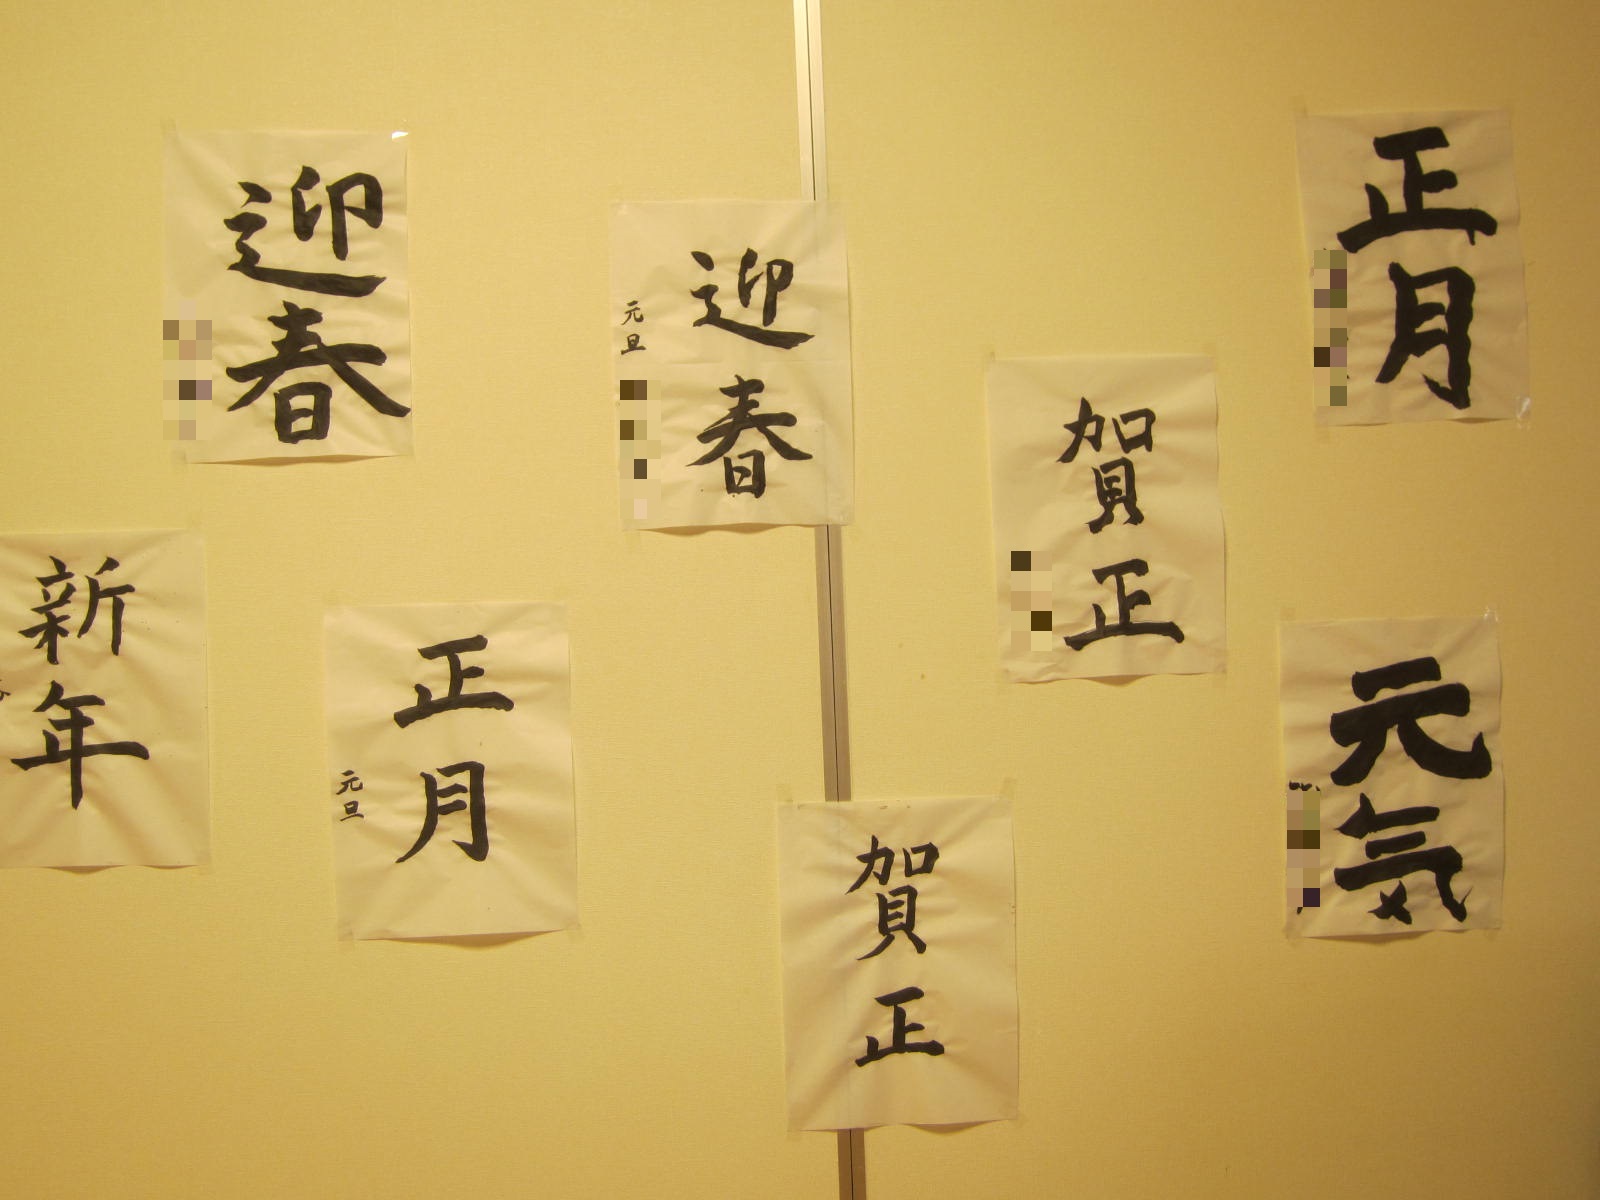 迎春
迎春
元旦
正月
賀正
新年
正月
元旦
賀正
元気